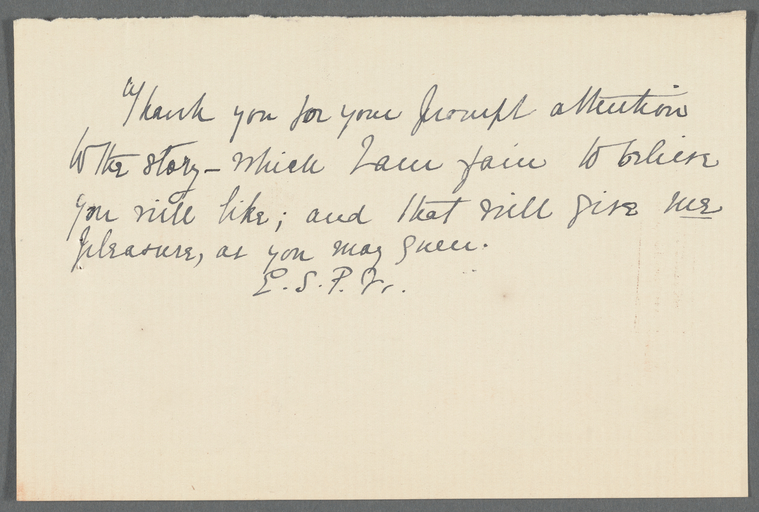 Thank you for your prompt attention
to the story – which I am fain to believe
you will like; and that will give me
pleasure, as you may guess.
E. S. P. W.